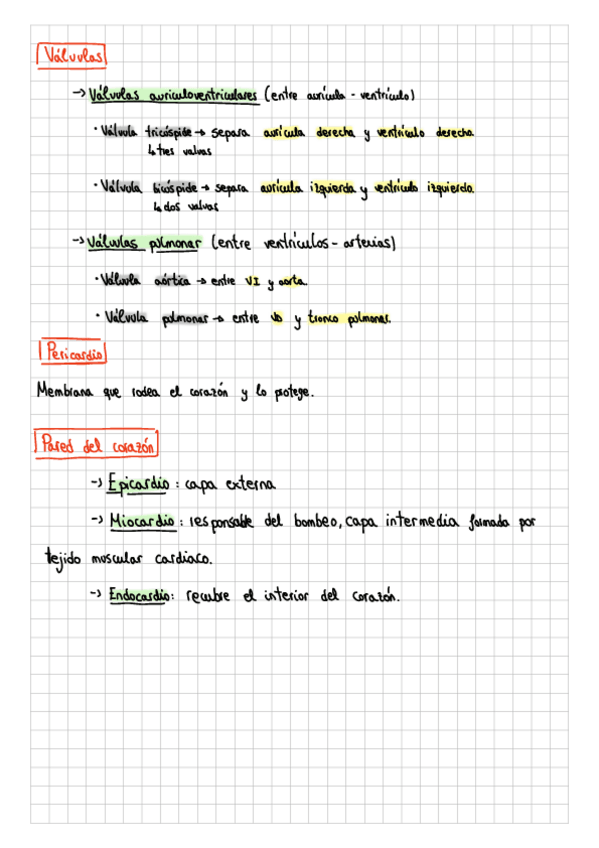 Válvulas
→ Válvulas auriculoventriculares (entre aurícula - ventrículo)
· Válvula tricúspide → separa aurícula derecha y ventrículo derecho.
↳ tres valvas
· Válvula bicúspide → separa aurícula izquierda y ventrículo izquierdo.
↳ dos valvas
→ Válvulas pulmonar (entre ventrículos - arterias)
· Válvula aórtica → entre VI y aorta.
· Válvula pulmonar → entre VD y tronco pulmonar.
Pericardio
Membrana que rodea el corazón y lo protege.
Pared del corazón
→ Epicardio: capa externa
→ Miocardio: responsable del bombeo, capa intermedia formada por
tejido muscular cardiaco.
→ Endocardio: recubre el interior del corazón.